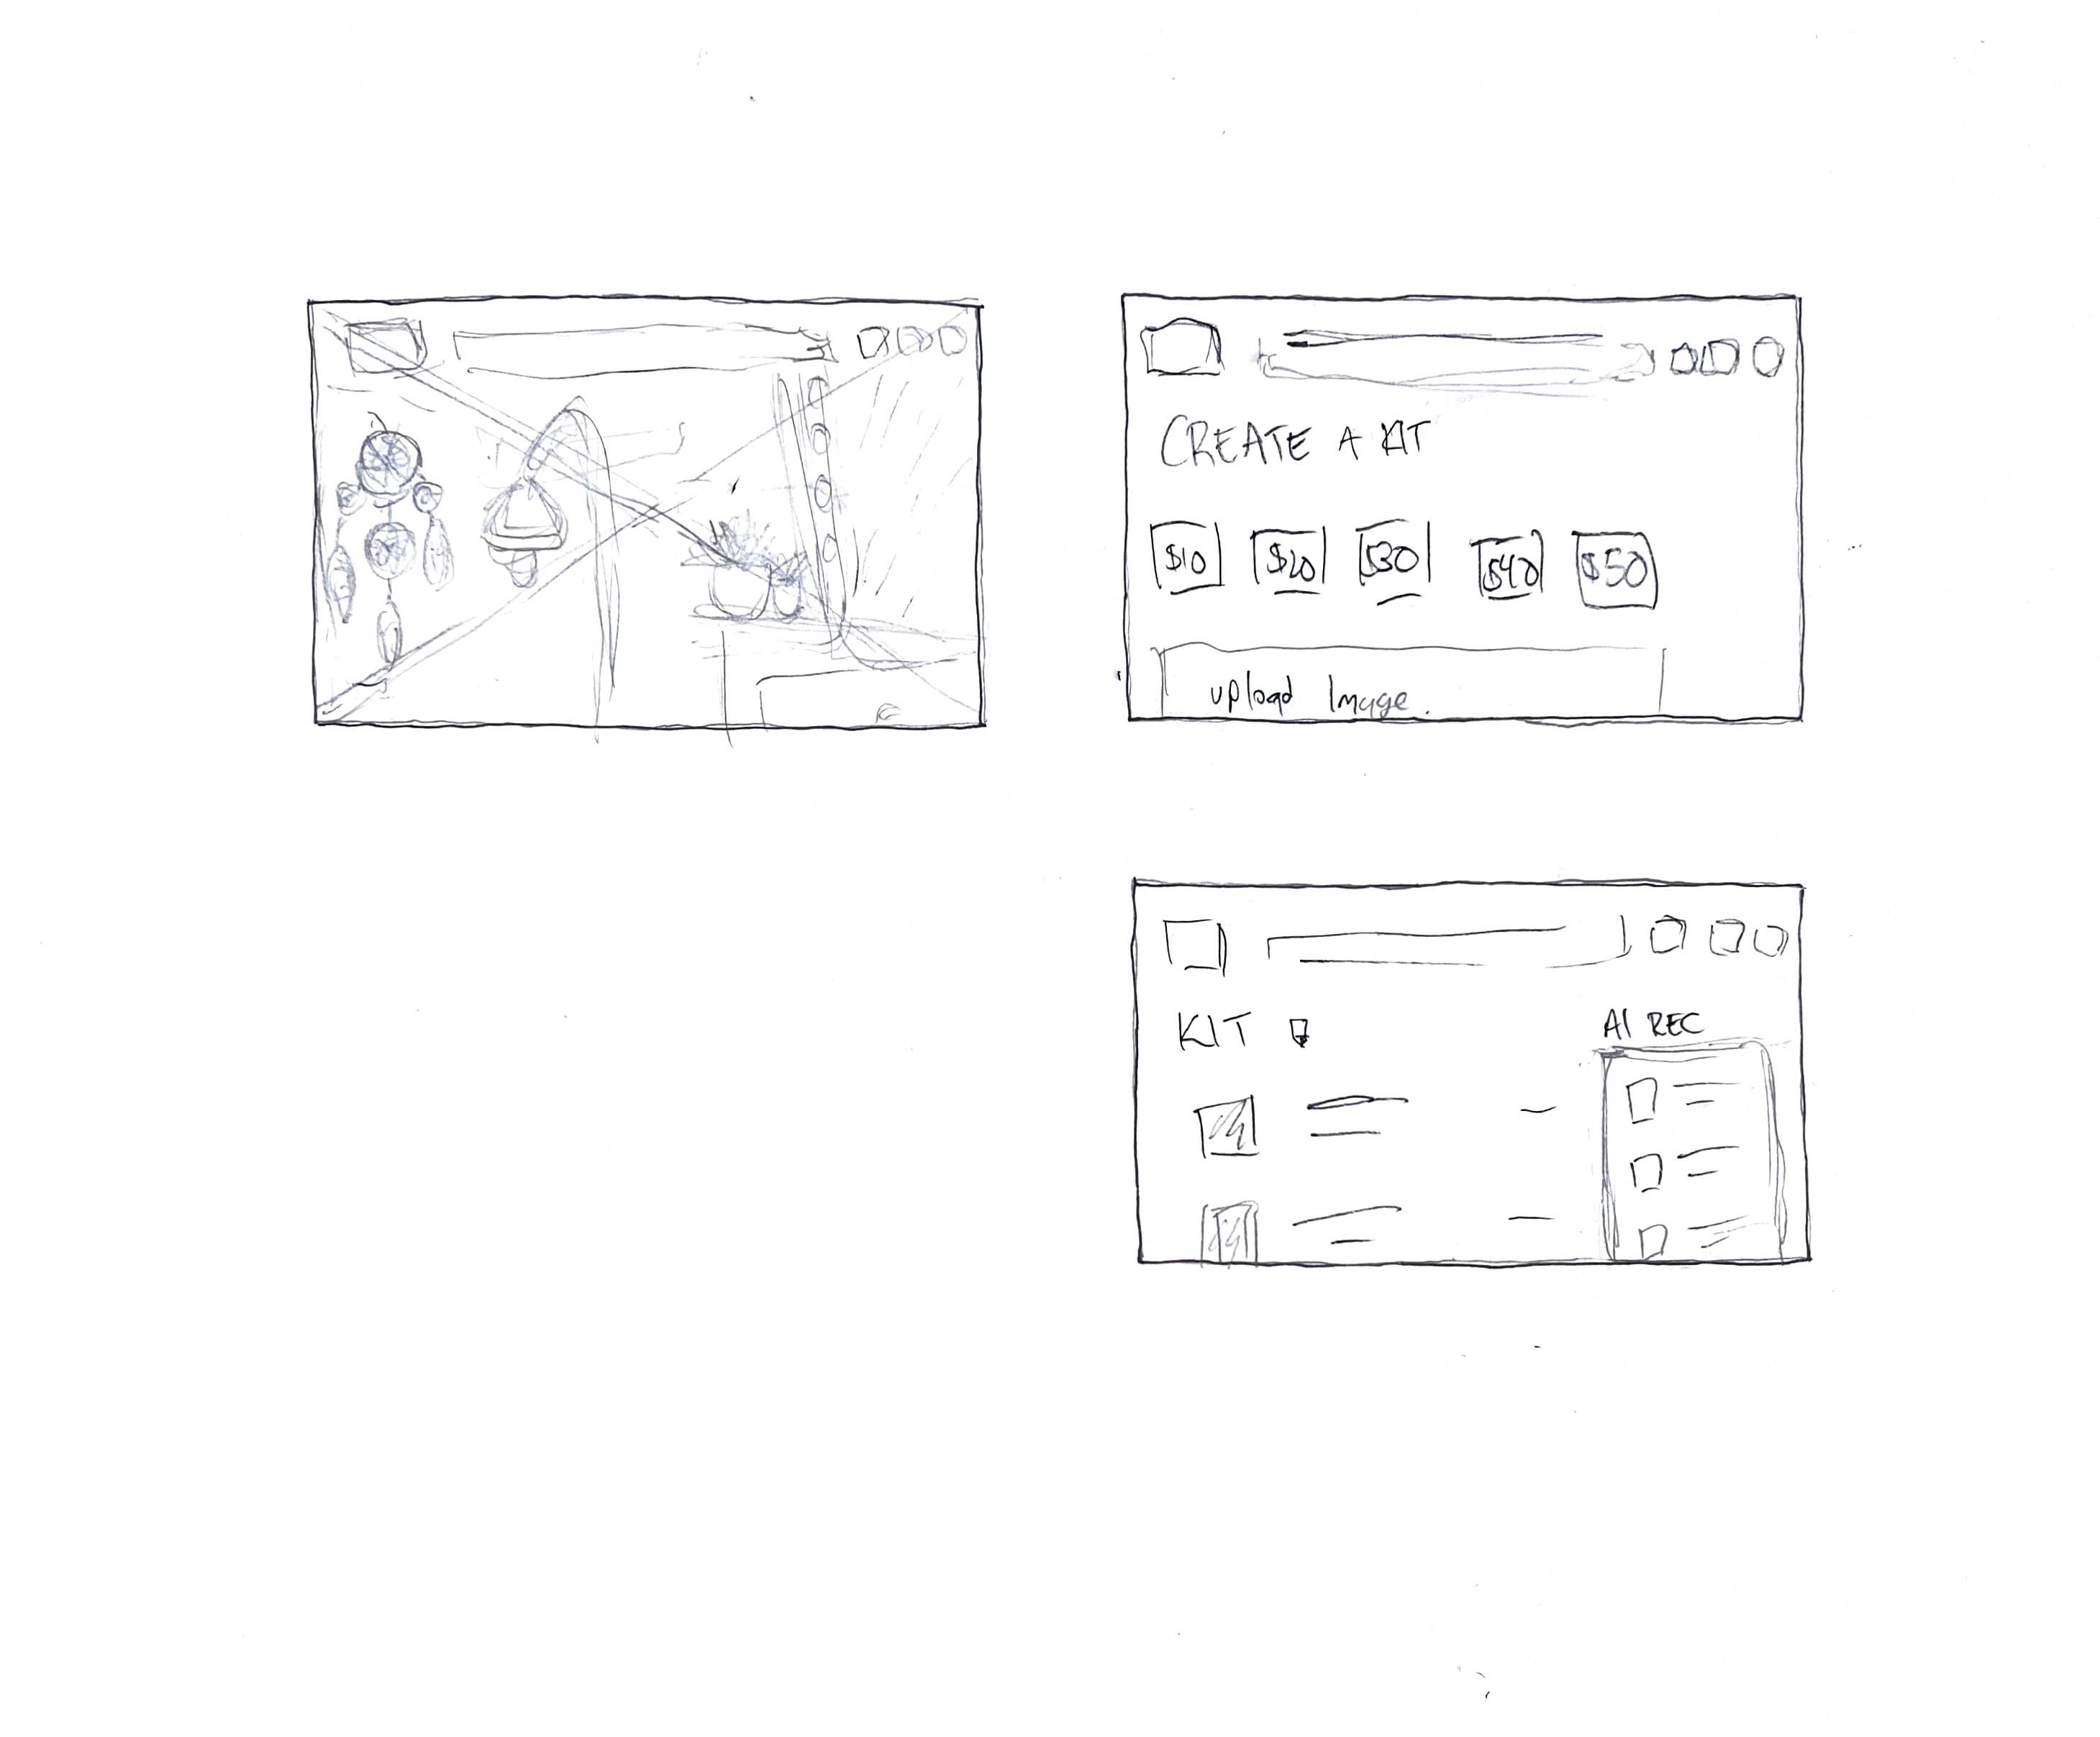 CREATE A KIT
$10 $20 $30 $40 $50
upload Image.
KIT
AI REC